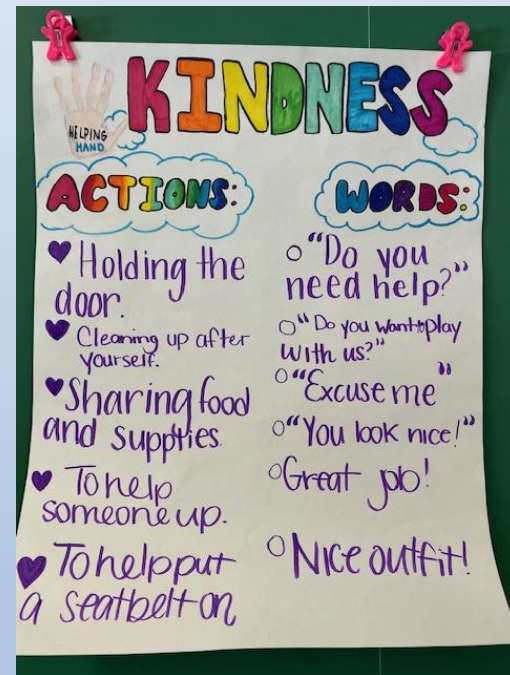 KINDNESS
HELPING
HAND
ACTIONS:
Holding the
door.
Cleaning up after
yourself.
Sharing food
and supplies.
To help
someone up.
To help put
a seatbelt on
WORDS:
"Do you
need help?"
"Do you want to play
with us?"
"Excuse me"
"You look nice!"
Great job!
Nice outfit!